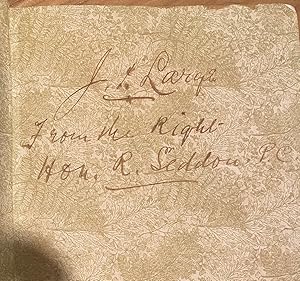 From the Right
Hon. R. Seddon. P.C